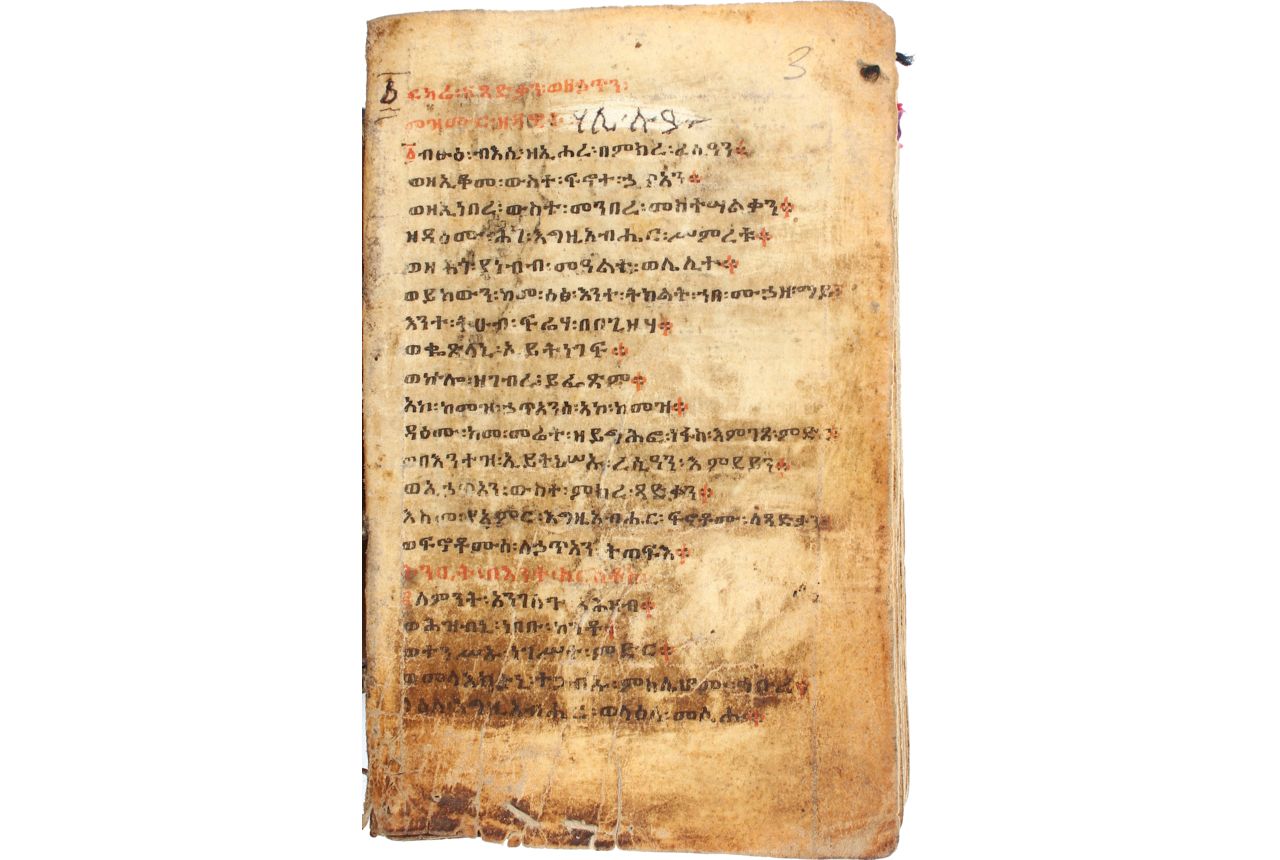 3
ፍካሬ፡ ዘጻድቃን፡ ወዘኃጥኣን፡
መዝሙር፡ ዘዳዊት፡ ሃሌ ሉያ
፩ብፁዕ፡ ብእሲ፡ ዘኢሖረ፡ በምክረ፡ ረሲዓን፨
ወዘኢቆመ፡ ውስተ፡ ፍኖተ፡ ኃጥአን፨
ወዘኢነበረ፡ ውስተ፡ መንበረ፡ መስተሣልቃን፨
ዘዳዕሙ፡ ሕገ፡ እግዚአብሔር፡ ሥምረቱ፨
ወዘ ሕጎ፡ ያነብብ፡ መዓልተ፡ ወሌሊተ፨
ወይከውን፡ ከመ፡ ዕፅ፡ እንተ፡ ትክልት፡ ኀበ፡ ሙኃዘ፡ ማይ፨
እንተ፡ ትሁብ፡ ፍሬሃ፡ በበጊዜሃ፨
ወቈጽላኒ፡ ኢይትነገፍ፨
ወኵሎ፡ ዘገብረ፡ ይፌጽም፨
አኮ፡ ከመዝ፡ ኃጥአንሰ፡ አኮ፡ ከመዝ፨
ዳዕሙ፡ ከመ፡ መሬት፡ ዘይግሕፎ፡ ነፋስ፡ እምገጸ፡ ምድር፨
ወበእንተዝ፡ ኢይትነሥኡ፡ ረሲዓን፡ እምደይን፨
ወኢኃጥአን፡ ውስተ፡ ምክረ፡ ጻድቃን፨
እስመ፡ ያአምር፡ እግዚአብሔር፡ ፍኖቶሙ፡ ለጻድቃን፨
ወፍኖቶሙሰ፡ ለኃጥአን፡ ትጠፍእ፨
ትንቢት፡ በእንተ፡ ክርስቶስ፡
ለምንት፡ አንገለጉ፡ አሕዛብ፨
ወሕዝብኒ፡ ነበቡ፡ ከንቶ፨
ወተንሥኡ፡ ነገሥተ፡ ምድር፨
ወመላእክትኒ፡ ተጋብኡ፡ ምስሌሆሙ፡ ኅቡረ፨
ላዕለ፡ እግዚአብሔር፡ ወላዕለ፡ መሲሑ፨